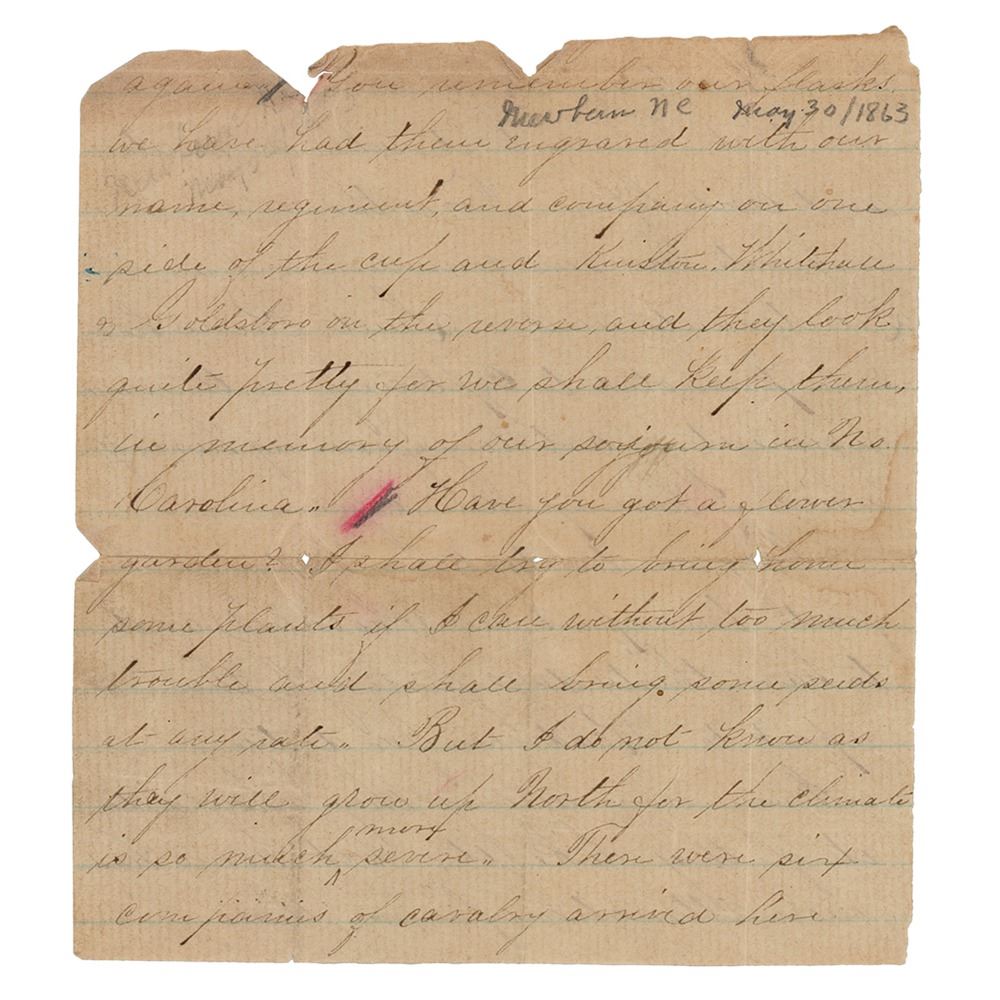 again. You remember our flasks.
Newbern NC May 30/1863
we have had them engraved with our
name, regiment, and company on one
side of the cup and Kinston, Whitehall
& Goldsboro on the reverse, and they look
quite pretty for we shall keep them,
in memory of our sojourn in No.
Carolina. Have you got a flower
garden? I shall try to bring home
some plants if I can without too much
trouble and shall bring some seeds
at any rate. But I do not know as
they will grow up North for the climate
more
is so much severe. There were six
companies of cavalry arrived here